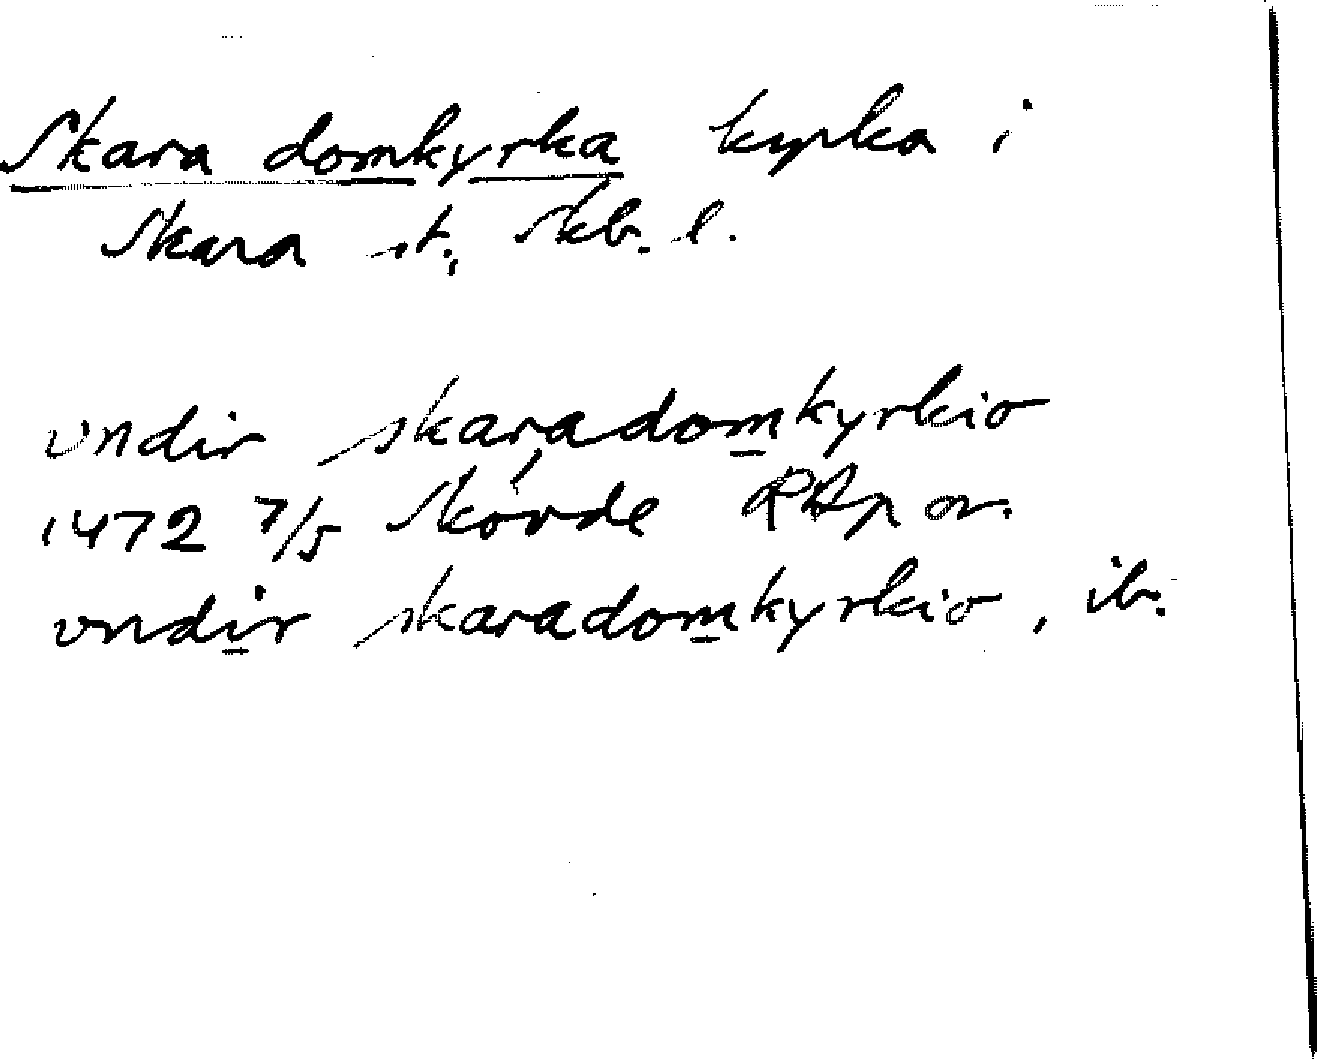 Skara domkyrka kyrka i
Skara st., Skb. l.
vndir skaradomkyrkio
1472 7/5 Skövde RAp or.
vndir skaradomkyrkio, ib.